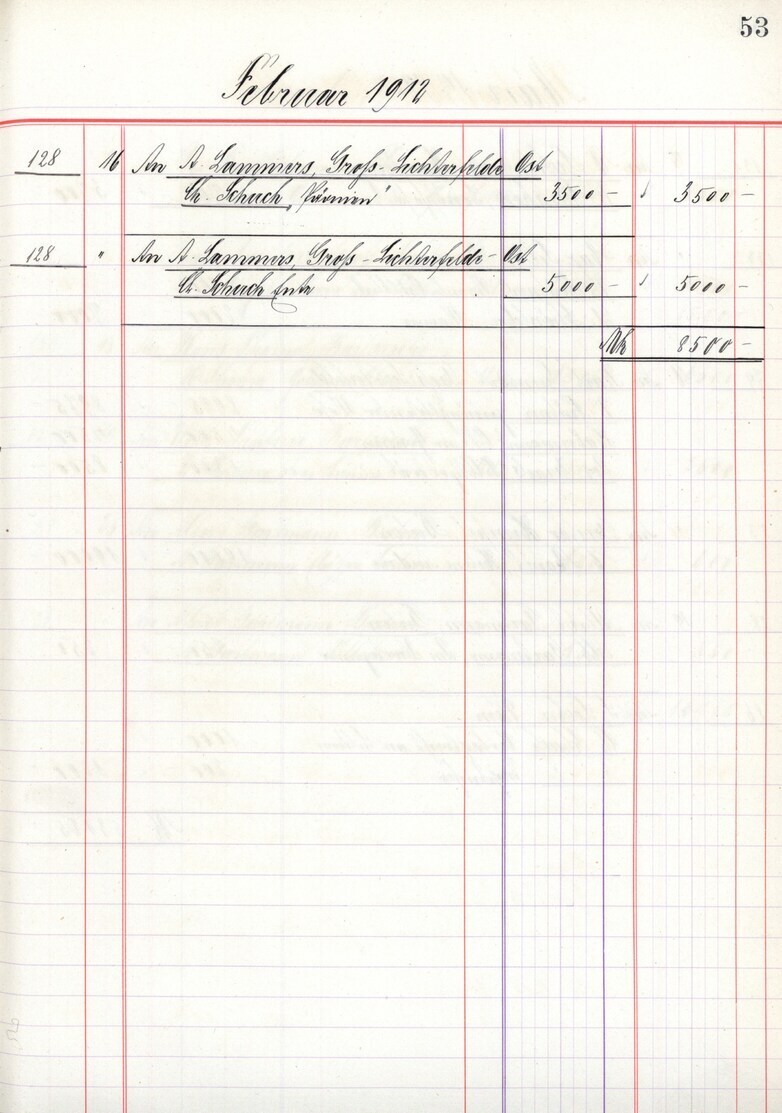 53
Februar 1912
128 16 An A. Lammers, Groß-Lichterfelde Ost
Ch. Schuch „Päonien" 3500 — 3500 —
128 " An A. Lammers, Groß-Lichterfelde-Ost
Ch. Schuch Ente 5000 — 5000 —
Mk 8500 —